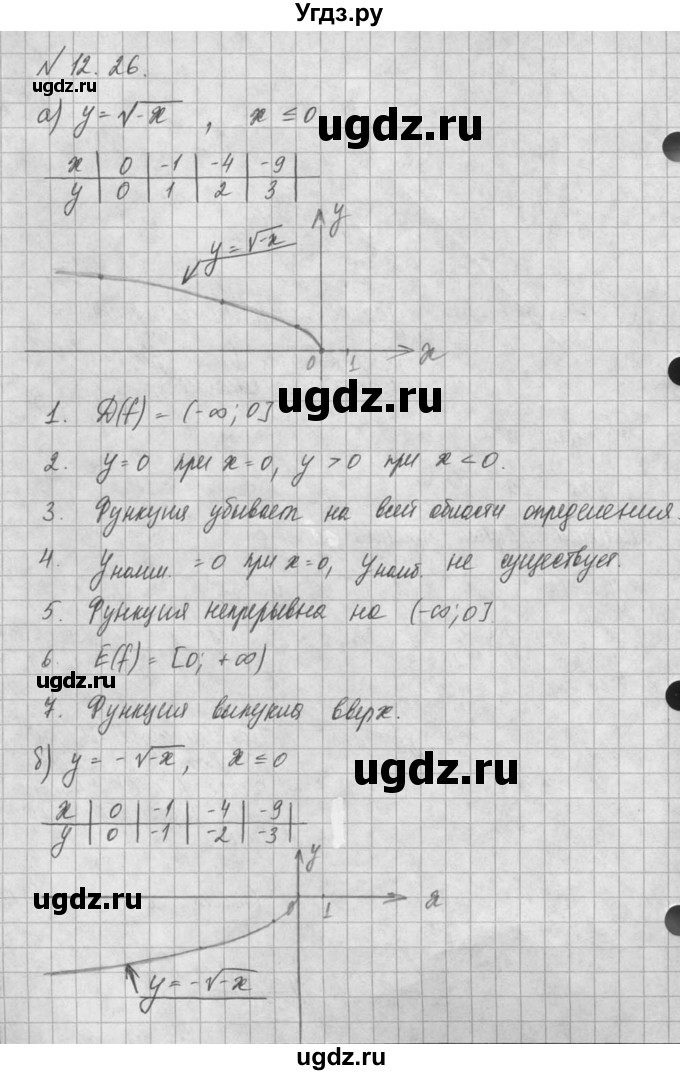 Угдз.ру
N 12.26.
ugdz.ru
а) y = √-x , x ≤ 0
ugdz.ru
x | 0 | -1 | -4 | -9 |
y | 0 | 1 | 2 | 3 |
y
y = √-x
0 1 x
ugdz.ru
1. D(f) = (-∞; 0]
2. y=0 при x=0, y>0 при x<0.
3. Функция убывает на всей области определения.
4. yнаим. = 0 при x=0, yнаиб. не существует.
5. Функция непрерывна на (-∞; 0]
6. E(f) = [0; +∞)
ugdz.ru
7. Функция выпукла вверх.
б) y = -√-x, x ≤ 0
ugdz.ru
x | 0 | -1 | -4 | -9 |
y | 0 | -1 | -2 | -3 |
y
ugdz.ru
0 1 x
y = -√-x
ugdz.ru